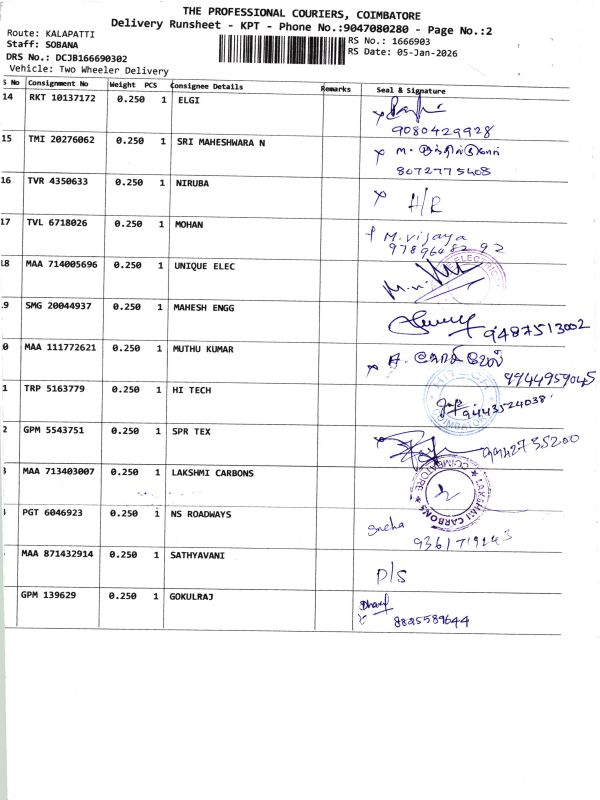 THE PROFESSIONAL COURIERS, COIMBATORE
Delivery Runsheet - KPT - Phone No.:9047080280 - Page No.:2
Route: KALAPATTI
Staff: SOBANA
DRS No.: DCJB166690302
Vehicle: Two Wheeler Delivery
RS No.: 1666903
RS Date: 05-Jan-2026
S No Consignment No Weight PCS Consignee Details Remarks Seal & Signature
14 RKT 10137172 0.250 1 ELGI
9080429928
15 TMI 20276062 0.250 1 SRI MAHESHWARA N
8072775408
16 TVR 4350633 0.250 1 NIRUBA H/R
17 TVL 6718026 0.250 1 MOHAN M.vijaya
9789648292
18 MAA 714005696 0.250 1 UNIQUE ELEC
9 SMG 20044937 0.250 1 MAHESH ENGG 9487513002
0 MAA 111772621 0.250 1 MUTHU KUMAR
9944959045
1 TRP 5163779 0.250 1 HI TECH
9443524038
2 GPM 5543751 0.250 1 SPR TEX 9942735200
3 MAA 713403007 0.250 1 LAKSHMI CARBONS
LAKSHMI CARBONS ★ COIMBATORE ★
PGT 6046923 0.250 1 NS ROADWAYS Sneha
9361719143
MAA 871432914 0.250 1 SATHYAVANI D/S
GPM 139629 0.250 1 GOKULRAJ
8825589644